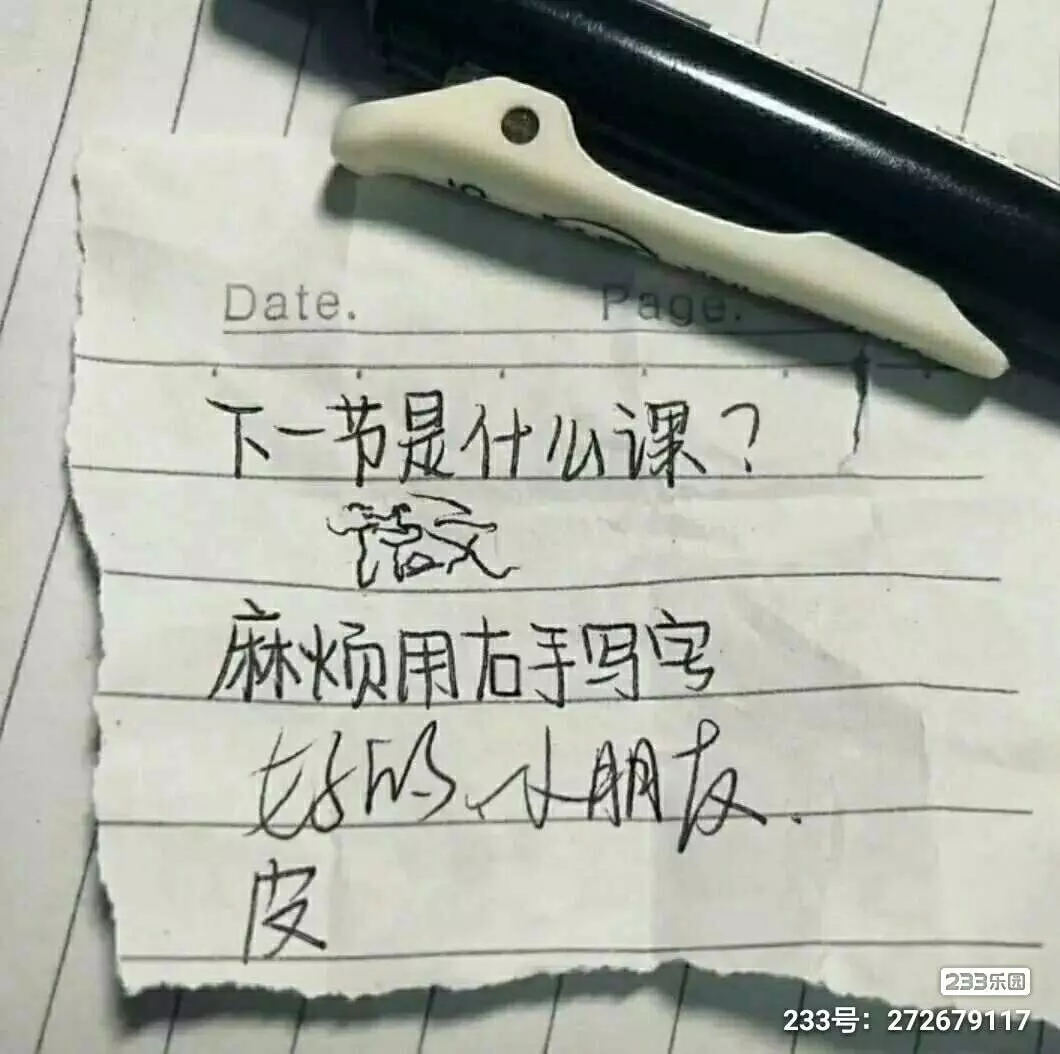 Date. Page.
下一节是什么课？
语文
麻烦用右手写字
好的、小朋友.
皮
233乐园
233号：272679117